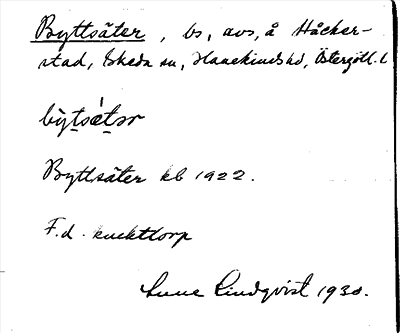 Byttsäter, bs, avs, å Håcker-
stad, Skeda sn, Hanekinds hd, Östergötl. l
by̱tsätər
Byttsäter kb 1922.
F.d. knekttorp
Sune Lindqvist 1930.